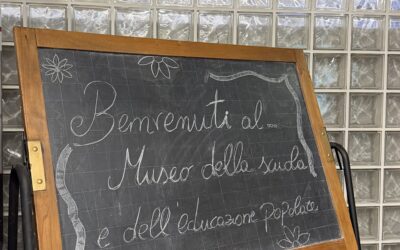 Benvenuti al...
Museo della scuola
e dell'educazione popolare